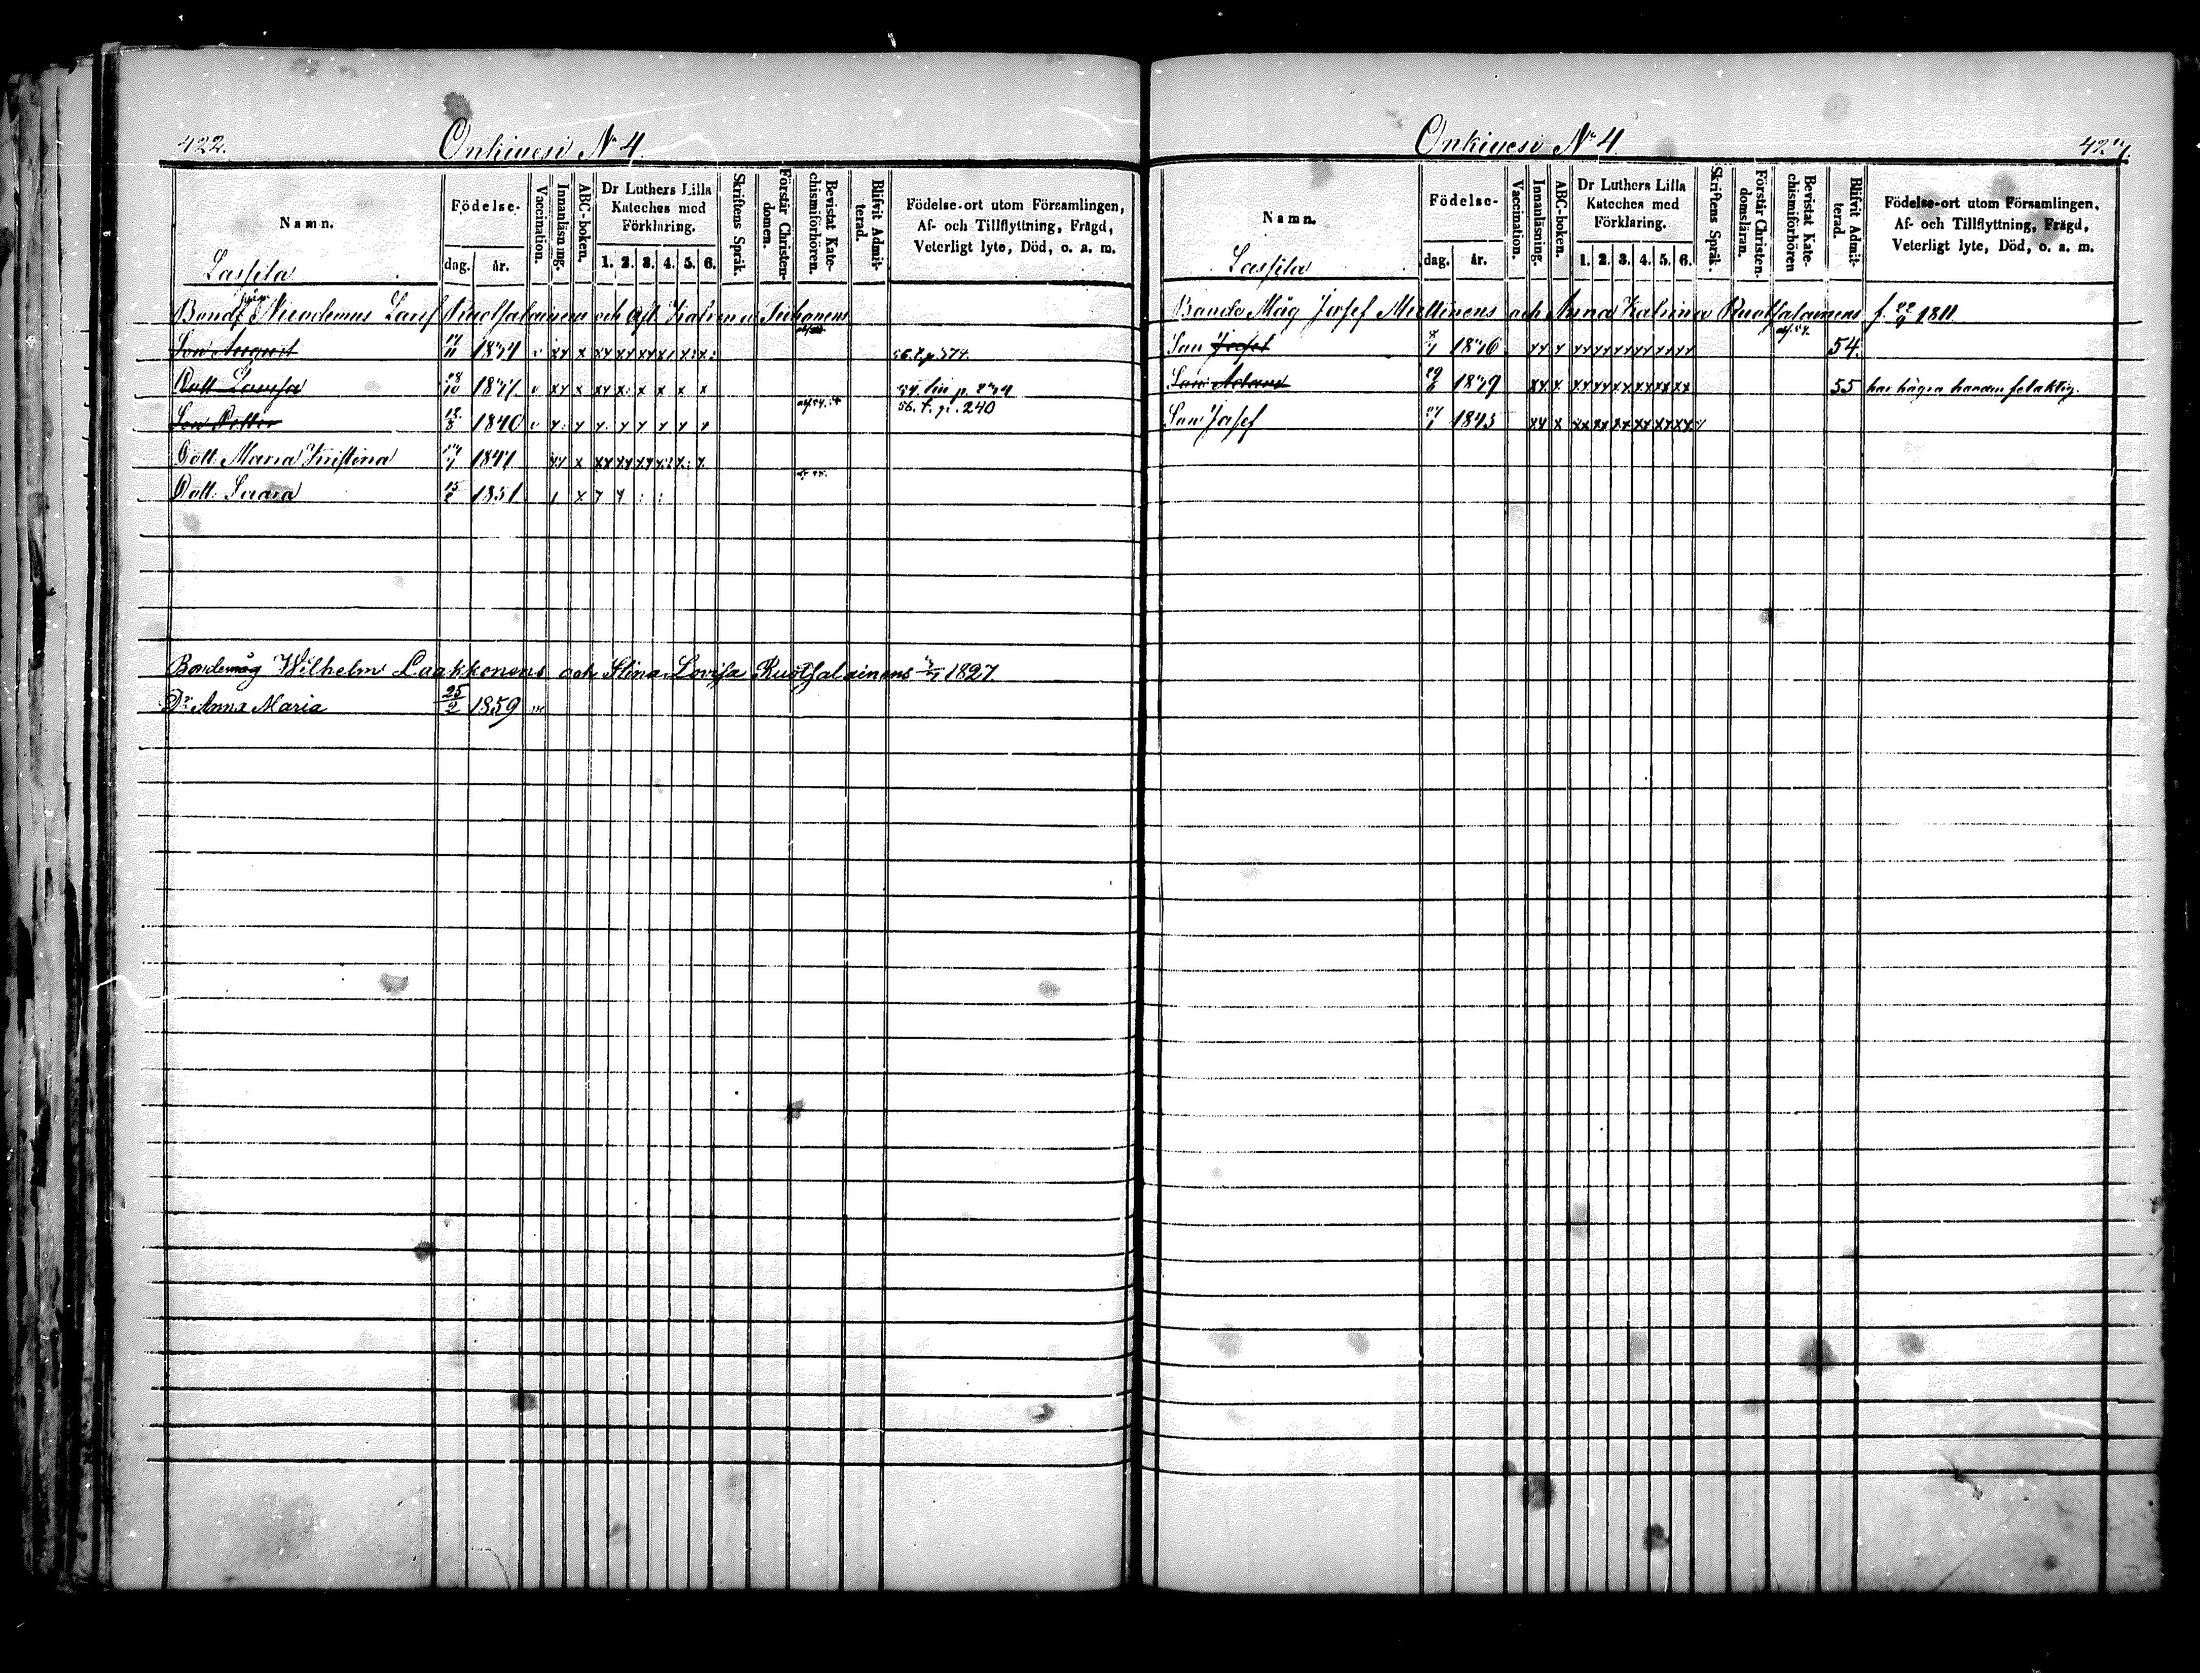 422.
Onkivesi No 4
Namn.
Födelse-
dag.
år.
Vaccination.
Innanläsning.
ABC-boken.
Dr Luthers Lilla Kateches med Förklaring.
1. 2. 3. 4. 5. 6.
Skriftens Språk.
Förstår Christendomen.
Bevistat Katechismiförhören.
Blifvit Admitterad.
Födelse-ort utom Församlingen,
Af- och Tillflyttning, Frägd,
Veterligt lyte, Död, o. a. m.
Lassila
Bond Nicodemus Ruotsalainens och Tiihonens
Son August 1834 56. t. p 574.
Dott. Lovisa 1837
Son Petter 18/5 1840 56. t. p. 240
Dott. Maria Kristina 1847
Dott. Saara 15/2 1851
Bondemåg Wilhelm Laakkonens och Stina Lovisa Ruotsalainens 1827
Dr Anna Maria 25/2 1859
Onkivesi No 4
Namn.
Födelse-
dag.
år.
Vaccination.
Innanläsning.
ABC-boken.
Dr Luthers Lilla Kateches med Förklaring.
1. 2. 3. 4. 5. 6.
Skriftens Språk.
Förstår Christendomsläran.
Bevistat Katechismiförhören
Blifvit Admitterad.
Födelse-ort utom Församlingen,
Af- och Tillflyttning, Frägd,
Veterligt lyte, Död, o. a. m.
Lassila
Bonde Måg Josef Mattinens och Anna Katrina Ruotsalainens f. 22/9 1811
Son 1836 54.
Son Adam 29/6 1839 55 har högra handen felaktig.
Son Josef 1845